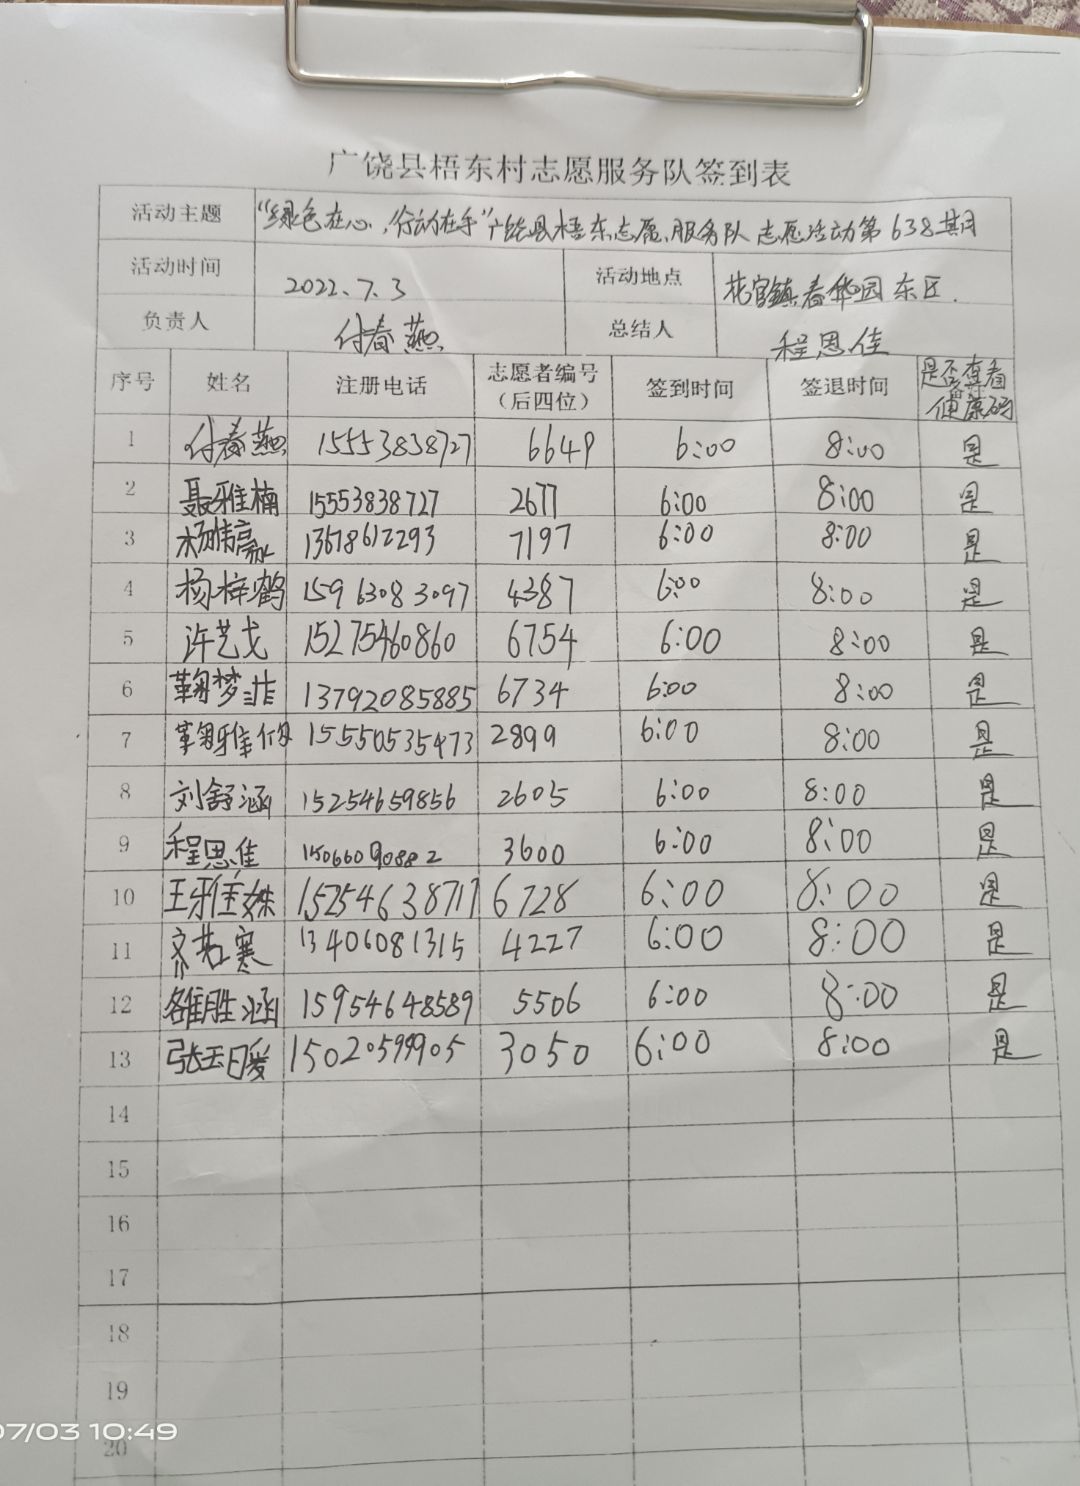 广饶县梧东村志愿服务队签到表
活动主题 “绿色在心,行动在手”广饶县梧东志愿服务队志愿活动第638期
活动时间 2022.7.3 活动地点 花官镇春华园东区.
负责人 付春燕 总结人 程思佳
序号 姓名 注册电话 志愿者编号(后四位) 签到时间 签退时间 是否查看健康码
1 付春燕 15553838727 6649 6:00 8:00 是
2 聂雅楠 15553838727 2677 6:00 8:00 是
3 杨 13678612293 7197 6:00 8:00 是
4 杨梓鹤 15963083097 4387 6:00 8:00 是
5 许艺戈 15275460860 6754 6:00 8:00 是
6 鞠梦 13792085885 6734 6:00 8:00 是
7 鞠雅 15550535473 2899 6:00 8:00 是
8 刘舒涵 15254659856 2605 6:00 8:00 是
9 程思佳 15066090882 3600 6:00 8:00 是
10 王雅姝 15254638717 6728 6:00 8:00 是
11 齐若寒 13406081315 4227 6:00 8:00 是
12 胜涵 15954648589 5506 6:00 8:00 是
13 张玉暖 15020599905 3050 6:00 8:00 是
14
15
16
17
18
19
20
07/03 10:49